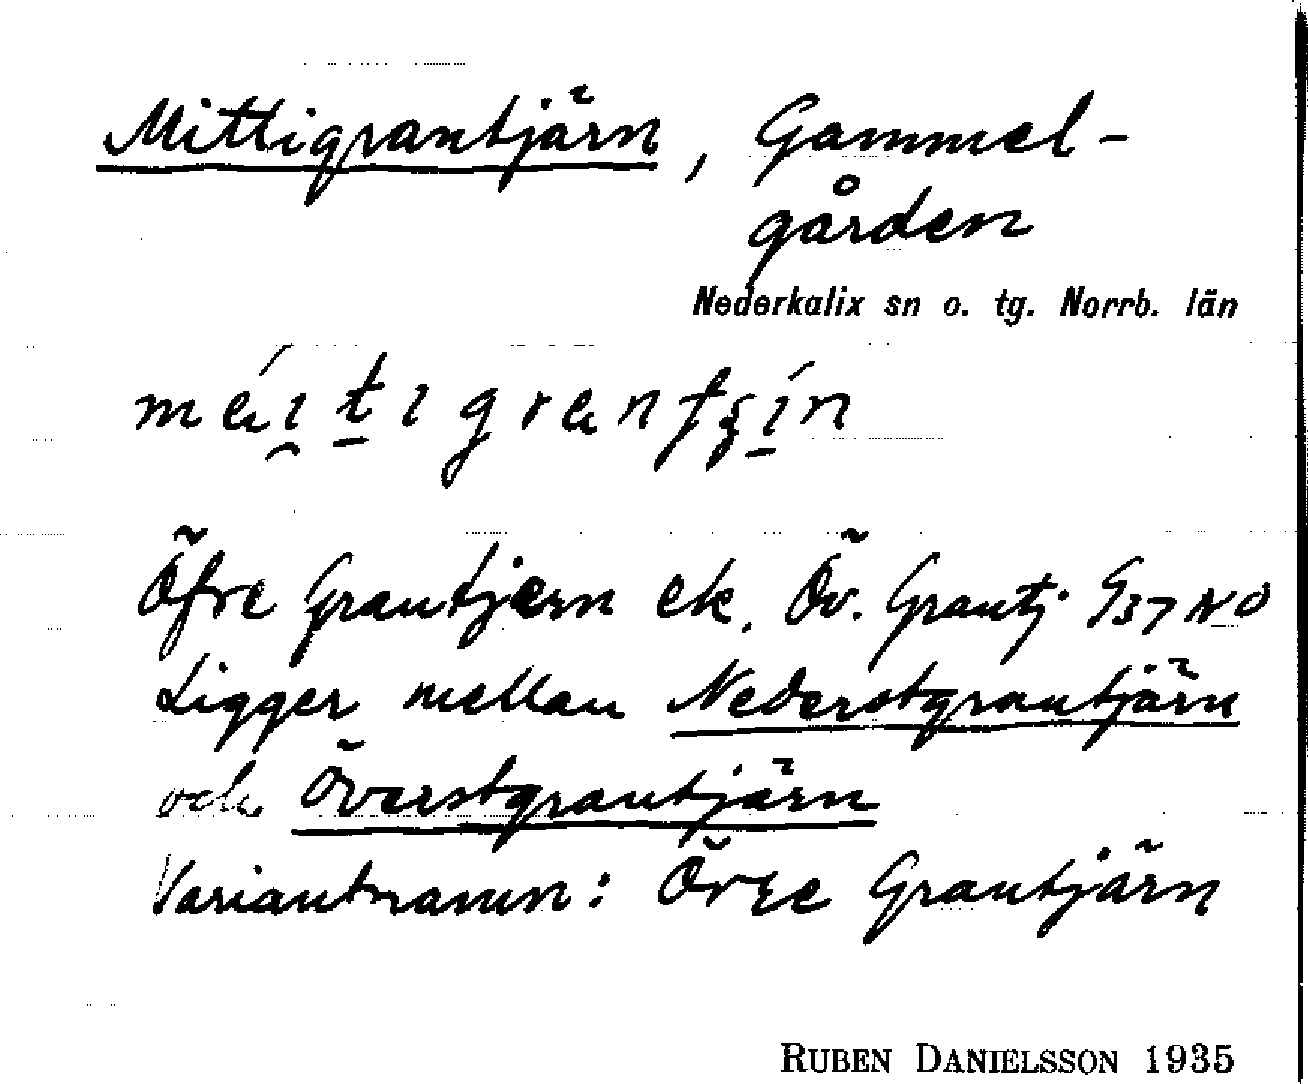 Mittigrantjärn, Gammel-
gården
Nederkalix sn o. tg. Norrb. län
Öfre Grantjern ek. Öv. Grantj. G37NO
Ligger mellan Nederstgrantjärn
och Överstgrantjärn
Variantnamn: Övre Grantjärn
RUBEN DANIELSSON 1935